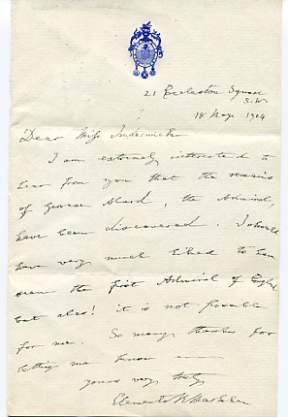 21 Eccleston Square
S.W.
18 May 1904
Dear Miss
I am extremely interested to
hear from you that the remains
of Gervase Alard, the Admiral,
have been discovered. I should
have very much liked to have
seen the first Admiral of England
but alas! it is not possible
for me. So many thanks for
letting me know
yours very truly
Clements R Markham